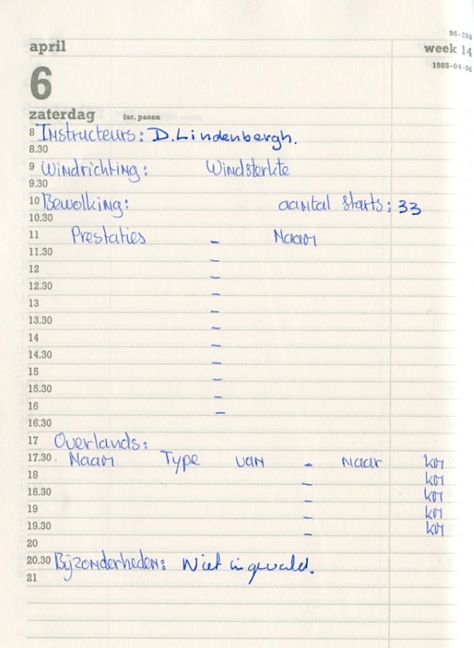 96-269
april week 14
6 1985-04-06
zaterdag isr. pasen
8 Instructeurs: D. Lindenbergh.
8.30
9 Windrichting: Windsterkte
9.30
10 Bewolking: aantal starts: 33
10.30
11 Prestaties - Naam
11.30 -
12 -
12.30 -
13 -
13.30 -
14 -
14.30 -
15 -
15.30 -
16 -
16.30
17 Overlands:
17.30 Naam Type van - naar km
18 - km
18.30 - km
19 - km
19.30 - km
20
20.30 Bijzonderheden: Niet ingevuld.
21